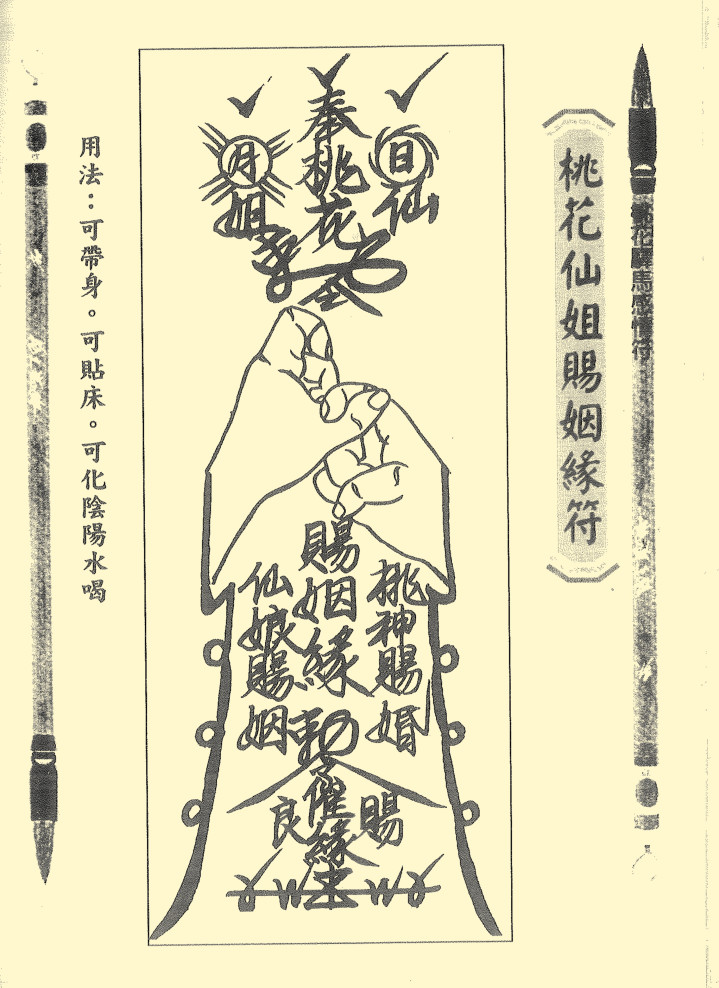 桃花驛馬感情符
桃花仙姐賜姻緣符
日
月
奉桃花
仙
姐
賜姻緣
桃神賜婚
仙娘賜姻
勅令
催緣
賜
良
用法：可帶身。可貼床。可化陰陽水喝